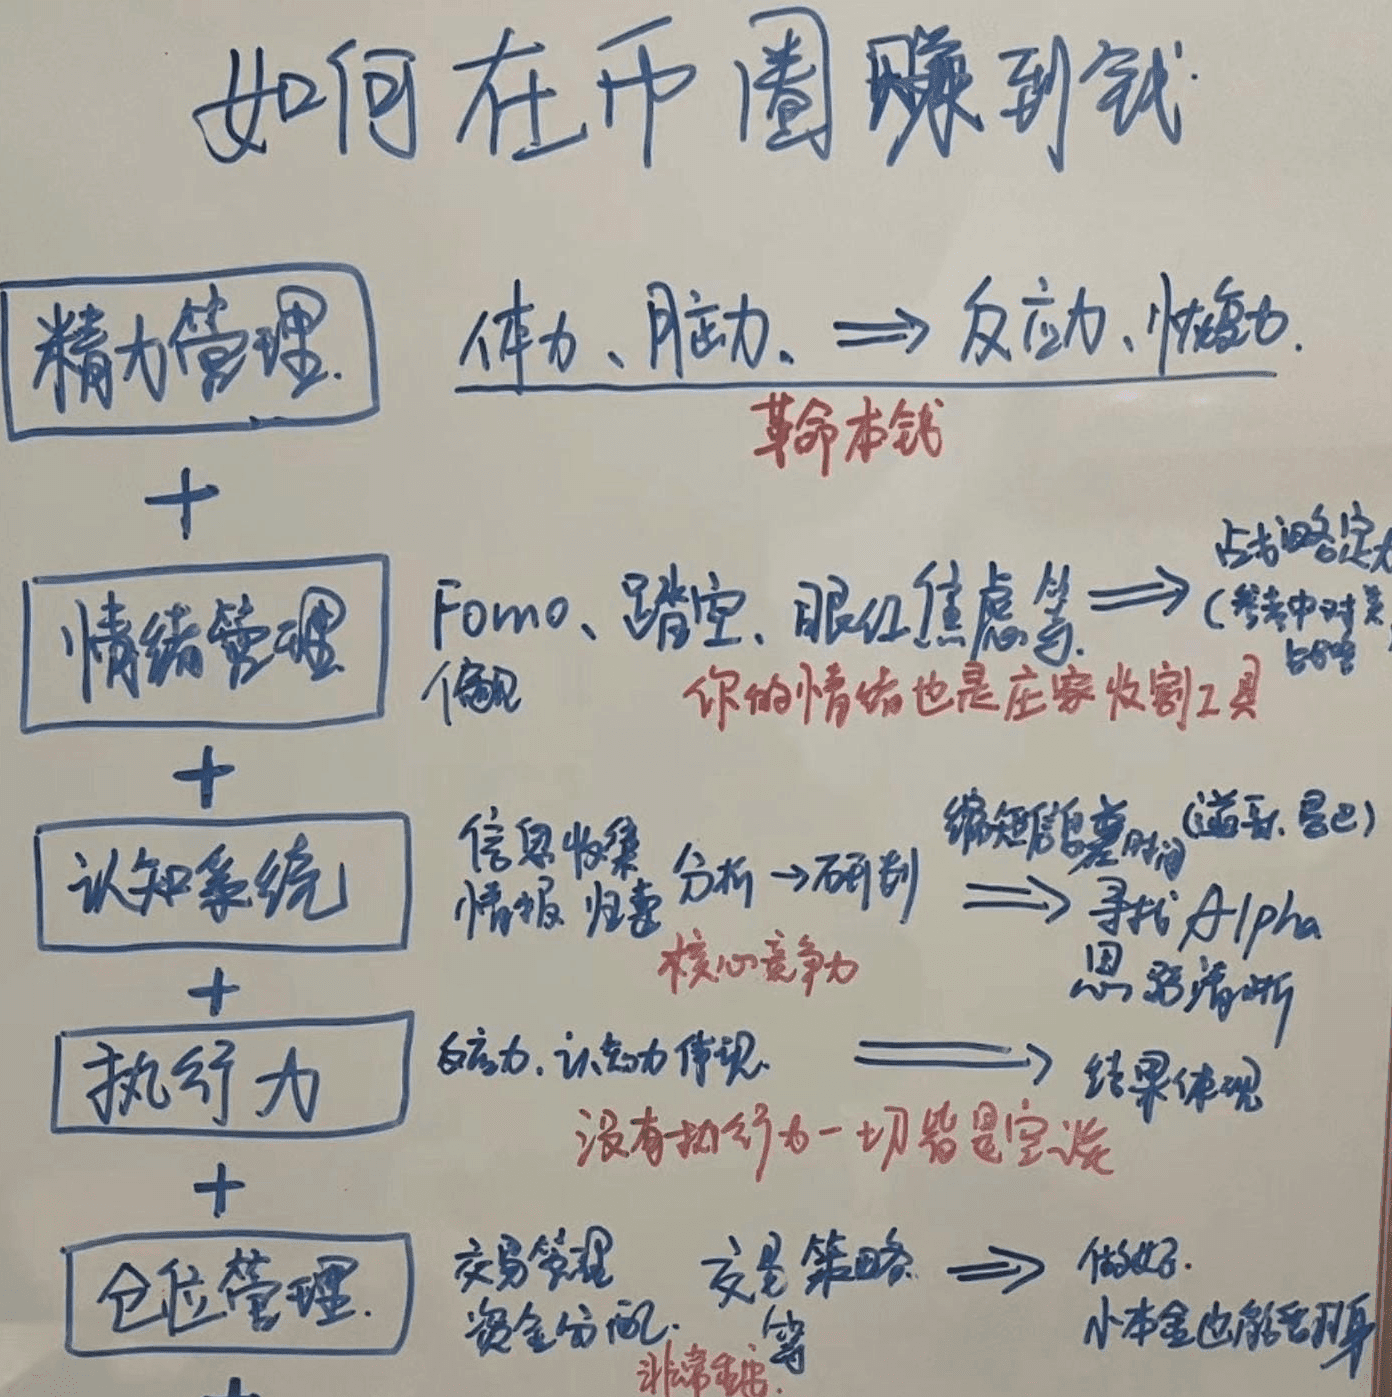 如何在币圈赚到钱.
精力管理.
体力、脑力、⇒反应力、恢复力.
革命本钱
+
情绪管理
Fomo、踏空、眼红焦虑等⇒
偏见
战略定力
(参考中对美
战略
你的情绪也是庄家收割工具
+
认知系统
信息收集
情报归集
分析→研判⇒
缩短信息差时间
寻找Alpha
思路清晰
核心竞争力
+
执行力
反应力、认知力体现.⇒结果体现
没有执行力一切皆是空谈
+
仓位管理.
交易管理
资金分配.
交易策略
等
⇒做好.
小本金也能
非常重要.
+